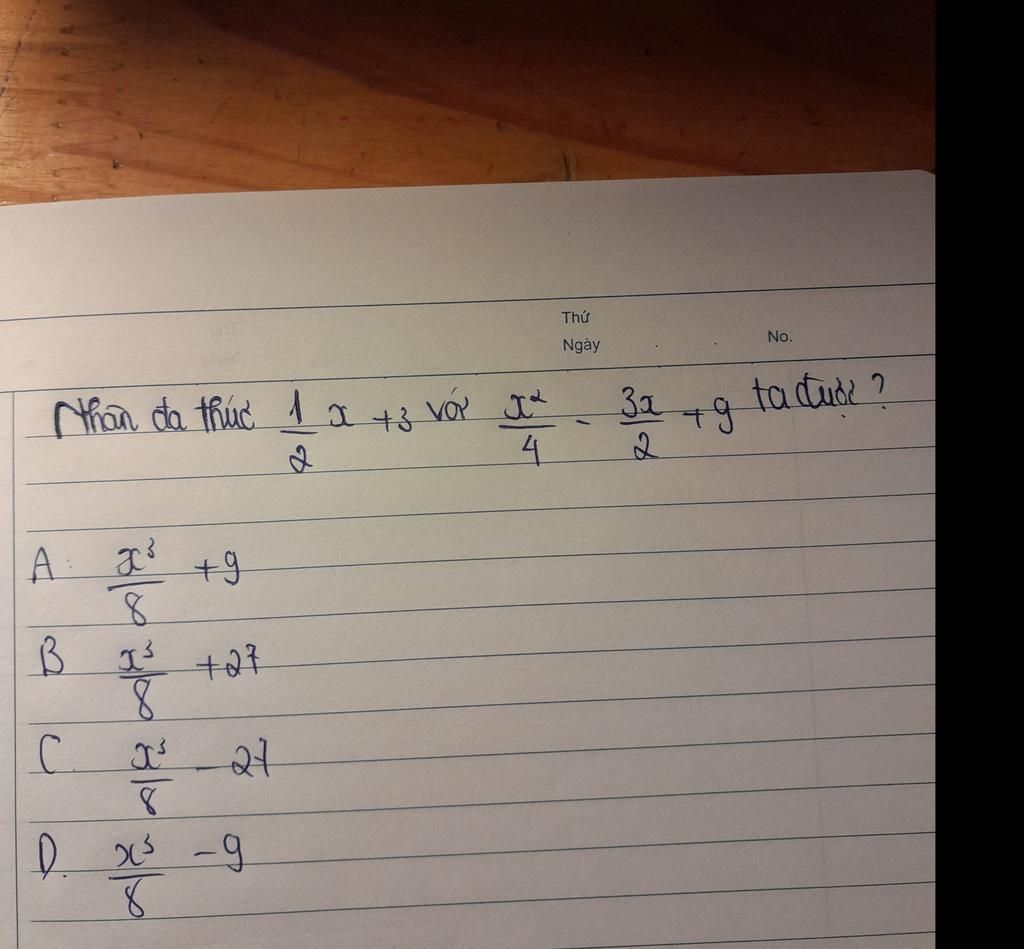 Thứ
Ngày . . No.
Nhân đa thức 1/2 x + 3 với x²/4 - 3x/2 + 9 ta được ?
A: x³/8 + 9
B x³/8 + 27
C. x³/8 - 27
D. x³/8 - 9